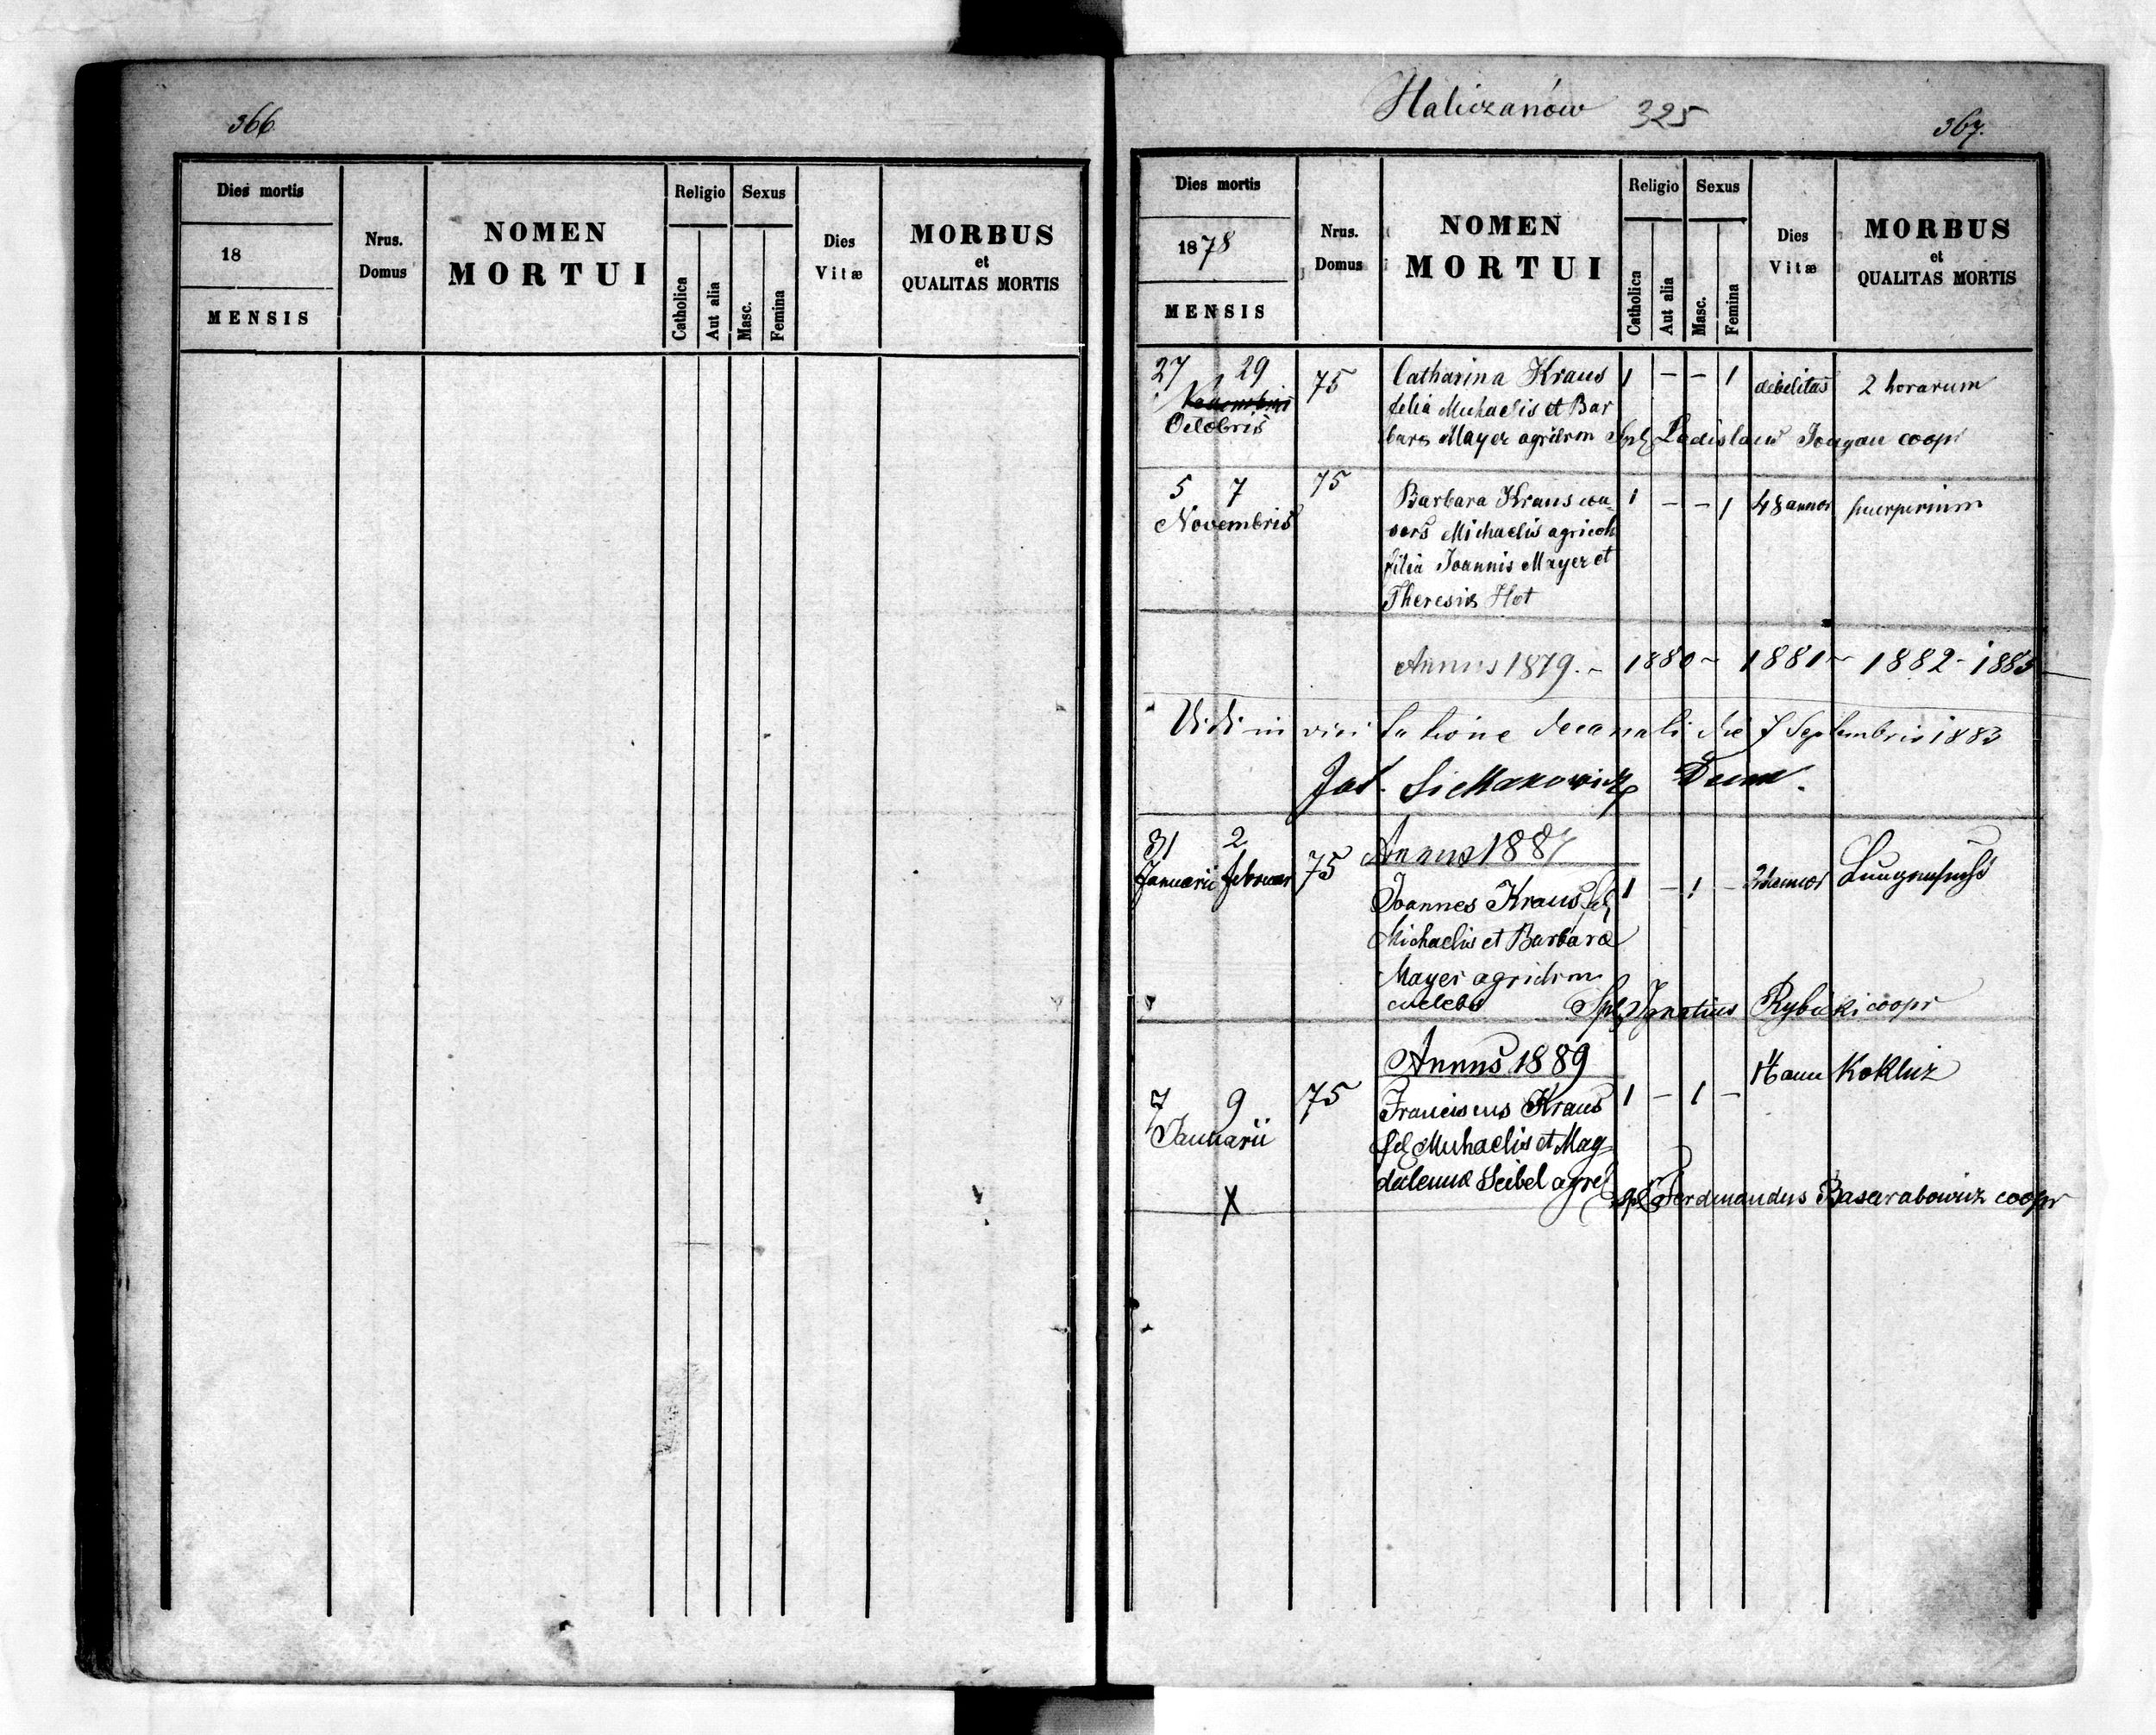 366
Dies mortis
18
MENSIS
Nrus.
Domus
NOMEN
MORTUI
Religio
Catholica
Aut alia
Sexus
Masc.
Femina
Dies
Vitæ
MORBUS
et
QUALITAS MORTIS
Haliczanów 325
367.
Dies mortis
1878
MENSIS
Nrus.
Domus
NOMEN
MORTUI
Religio
Catholica
Aut alia
Sexus
Masc.
Femina
Dies
Vitæ
MORBUS
et
QUALITAS MORTIS
27 29 75 Catharina Kraus 1 - - 1 debilitas 2 horarum
Novembris filia Michaelis et Bar
Octobris barę Mayer agricolarm Spl Ladislaus coopr
5 7 75 Barbara Kraus 1 - - 1 48 annor puerperium
Novembris
Michaelis agricol
filia Joannis Mayer et
Theresia Hot
Annus 1879. - 1880 - 1881 - 1882 - 1883
Vidi in visitatione decanali die 7 Septembris 1883
Decan.
31 2 75 Annus 1887
Januarii februar
Joannes Kraus fil 1 - 1 - annor Lungensucht
Michaelis et Barbara
Mayer agricolrm
caelebs Spl Ignatius Rybicki coopr
Annus 1889
7 9 75 Franciscus Kraus 1 - 1 - Kokluz
Januarii fil Michaelis et Mag
dalenæ Seibel agrel
X Spl Ferdinandus Basarabowicz coopr